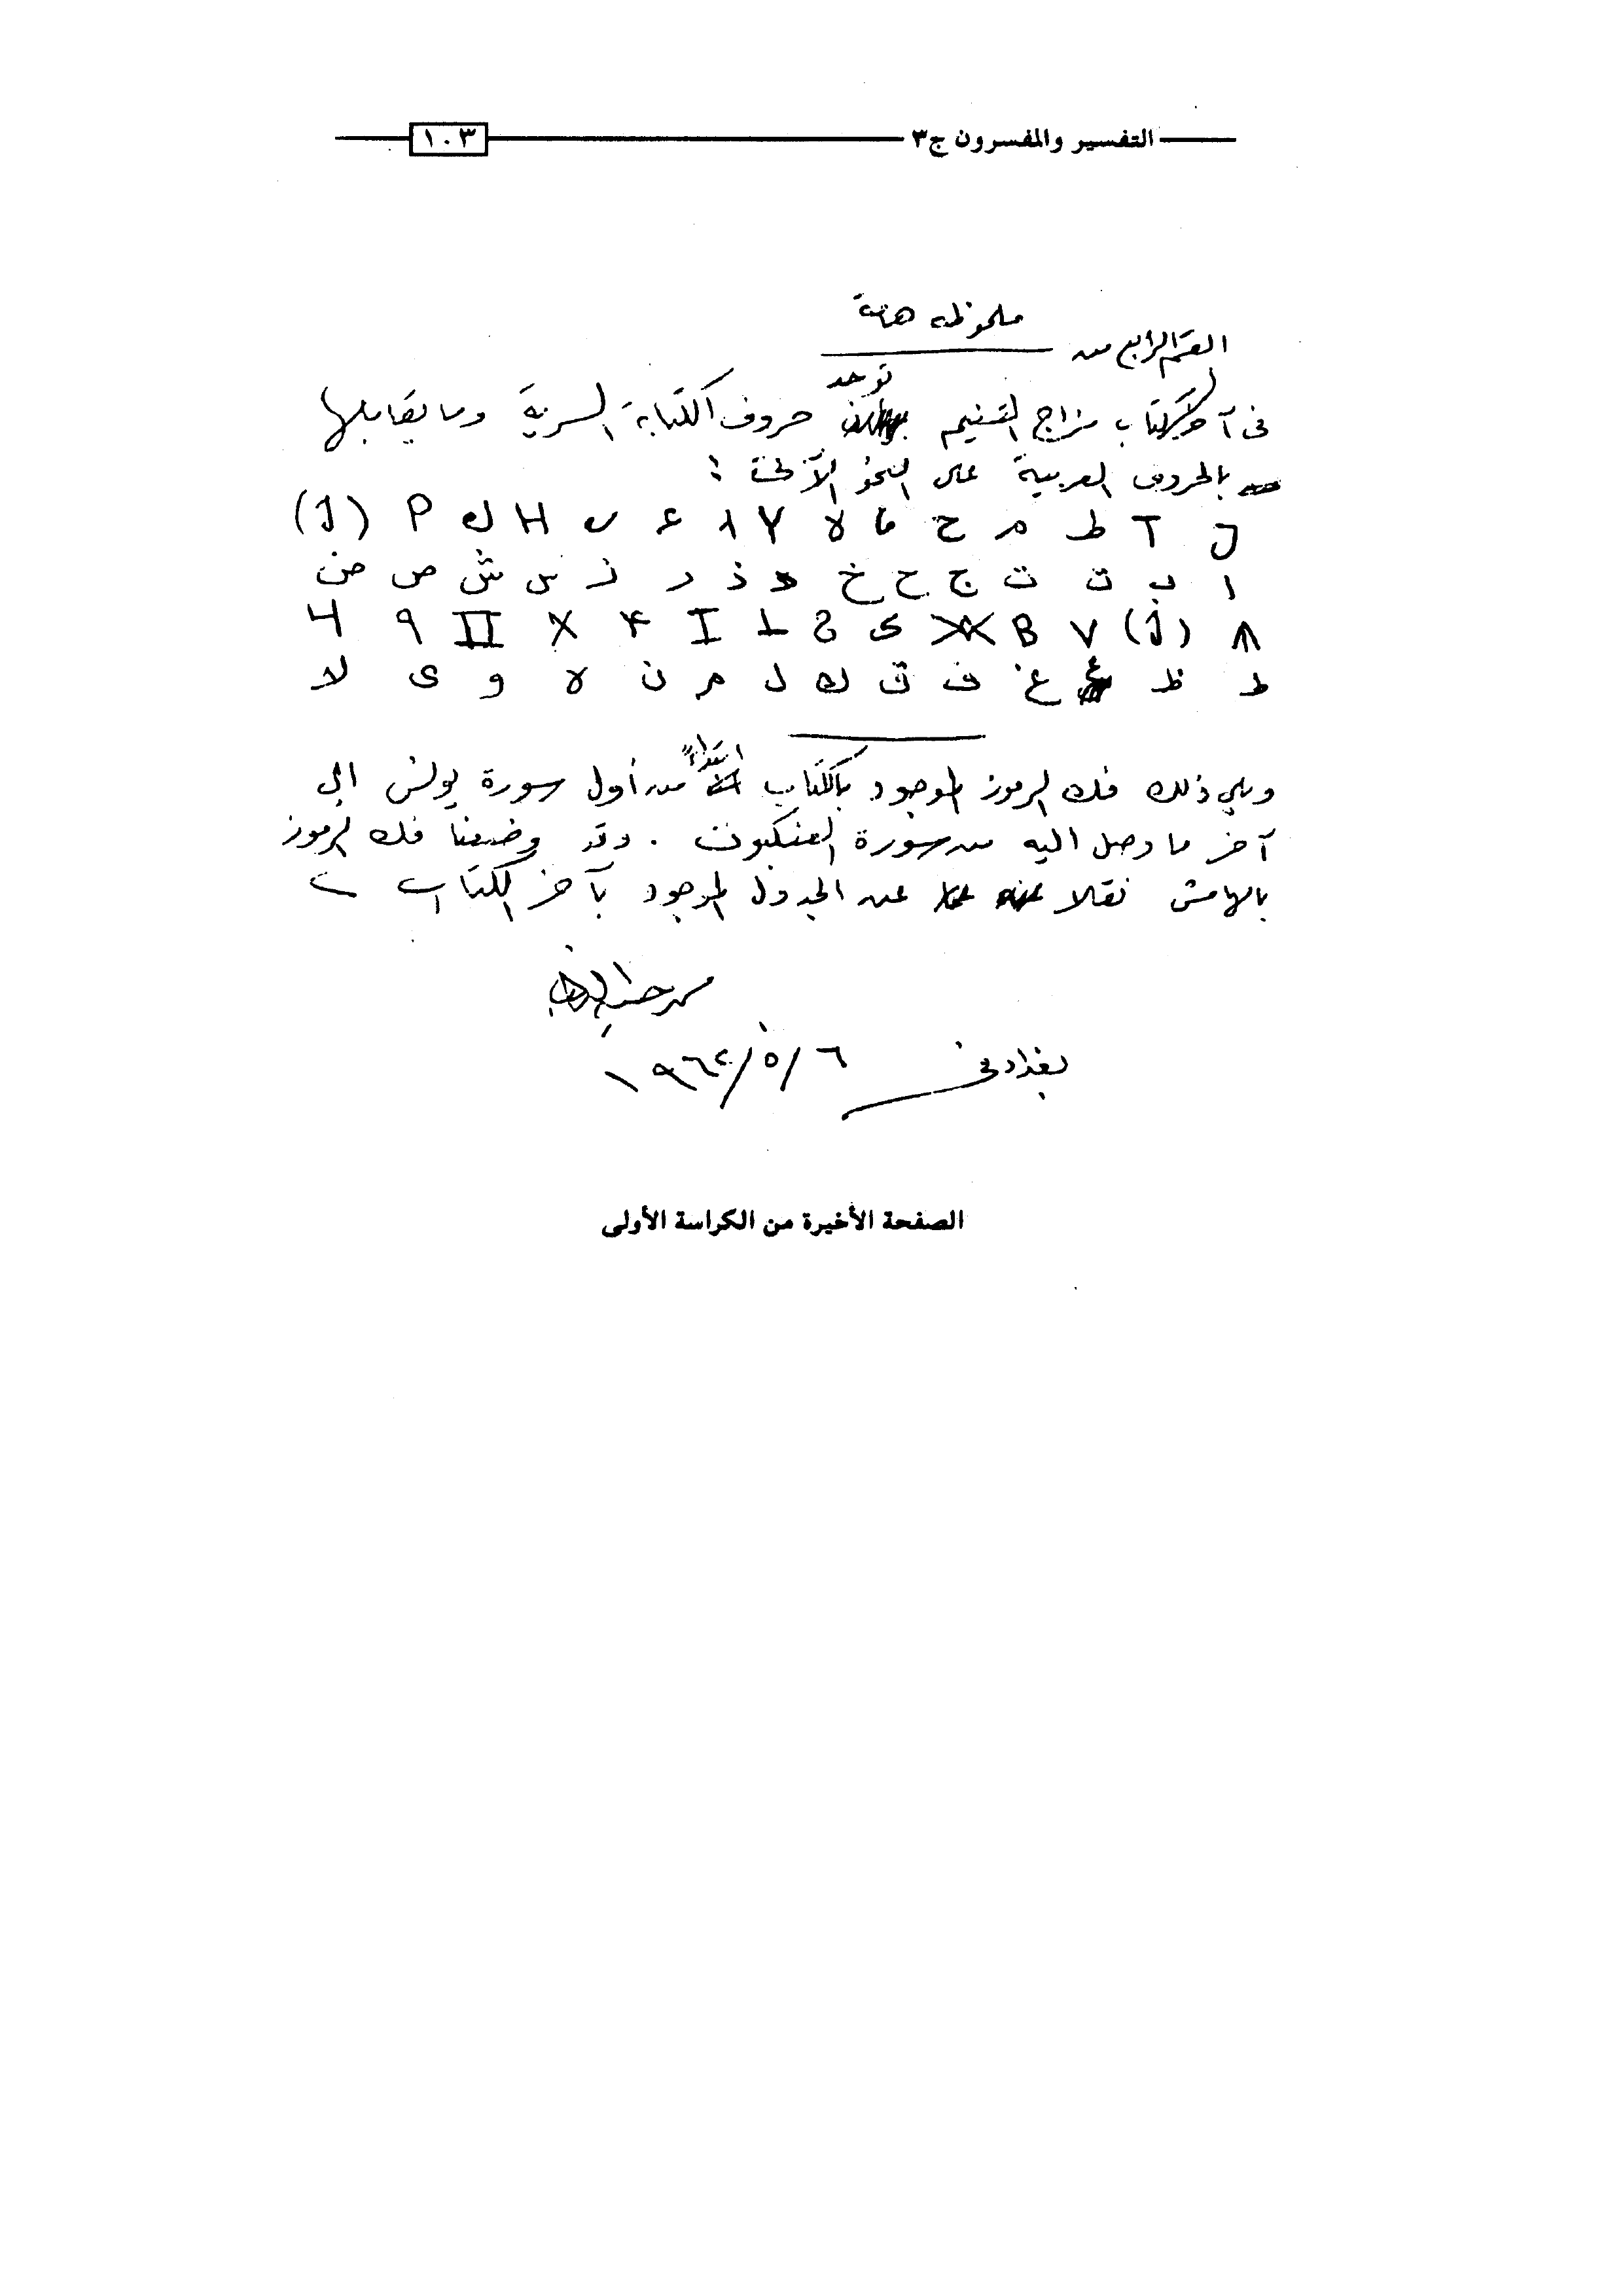 التفسير والمفسرون ج٣ ١٠٣
ملحوظه هامة
القسم الرابع من
توجد
فى آخر الكتاب مزاج التسنيم حروف الكتابة السرية وما يقابلها
بالحروف العربية على النحو الآتى :
T ط م ح لا Y ع H ل P (J)
ا ب ت ث ج ح خ د ذ ر ز س ش ص ض
Λ (J) V B XX ى I X II ٩
ط ظ ع غ ف ق ك ل م ن ه و ى لا
ابتداءً
ويلي ذلك فك الرموز الموجود بالكتاب من أول سورة يونس الى
آخر ما وصل اليه من سورة العنكبوت . وقد وضعنا فك الرموز
بالهامش نقلا عن الجدول الموجود بآخر الكتاب
محمد حسين الذهبى
بغداد فى ٦/٥/١٩٦٢
الصفحة الأخيرة من الكراسة الأولى